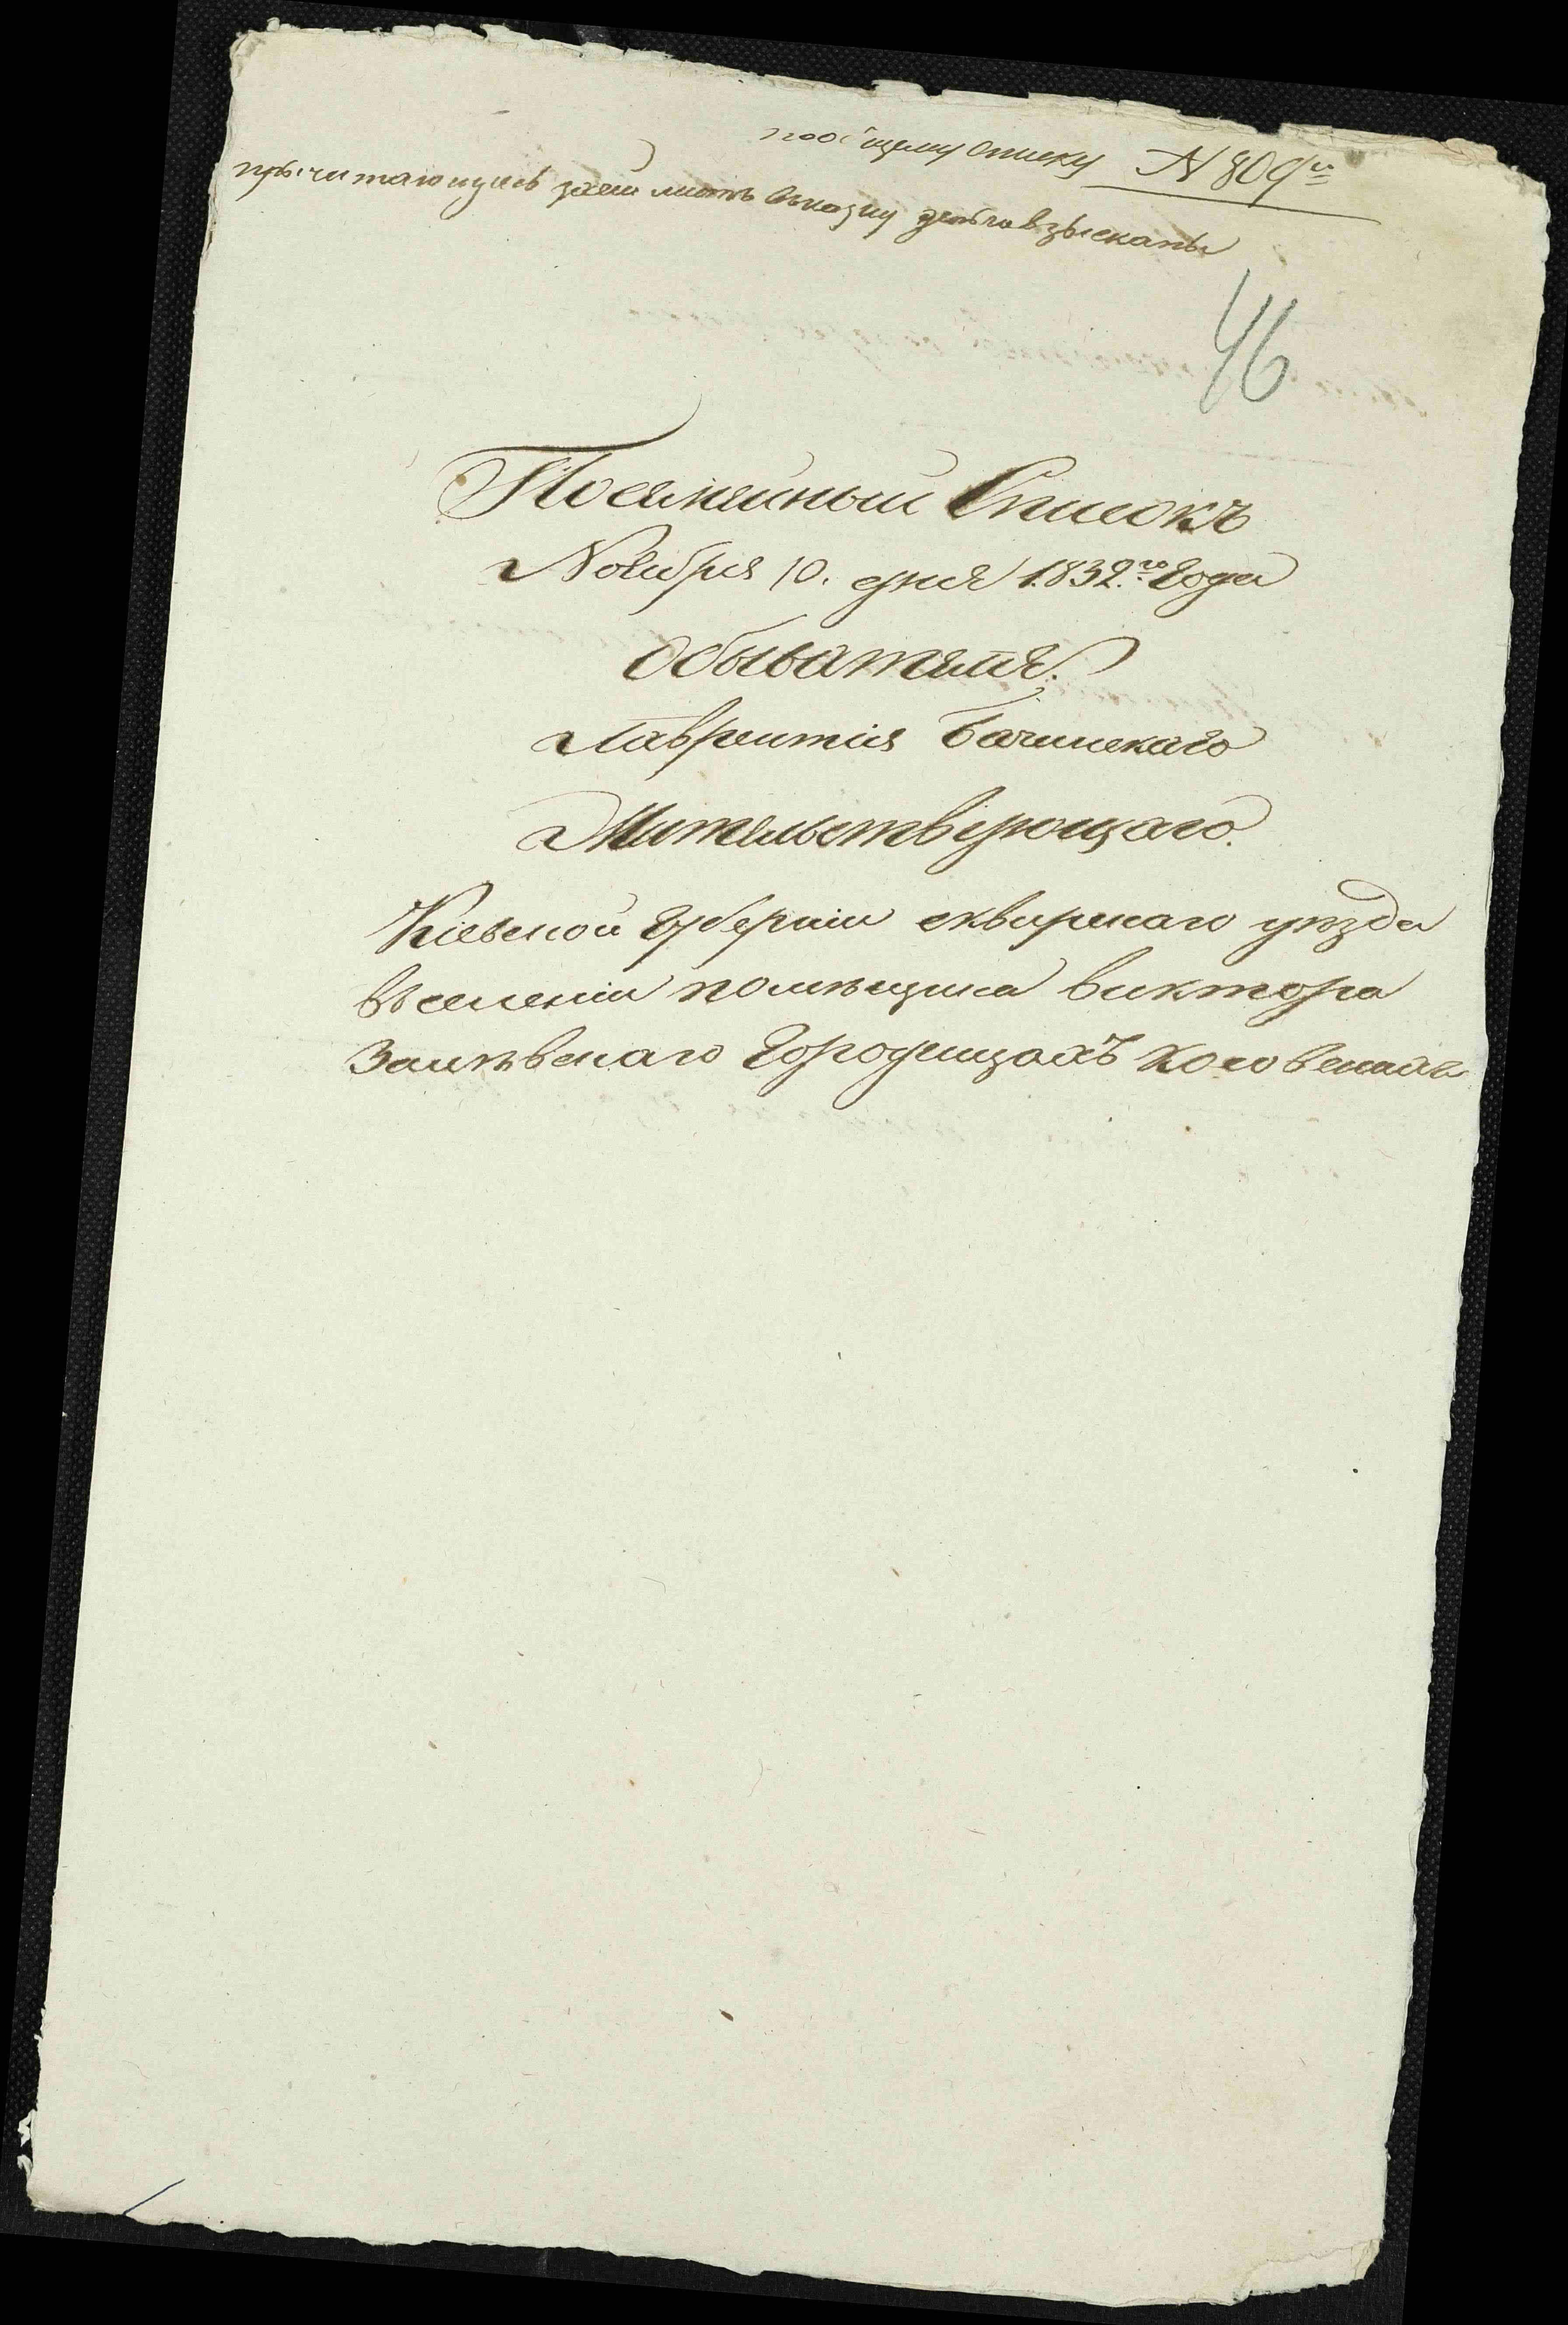 по общему списку № 809й
причитающиесь засей листъ въказну деньги взысканы
46
Посемейный Списокъ
Ноября 10. дня 1832.го Года
Обывателя:
Лаврентія Бачинскаго
Жительствующаго.
Кіевской Губерніи сквирскаго уезда
Въселеніи помещика виктора
Залѣвскаго Городищахъ